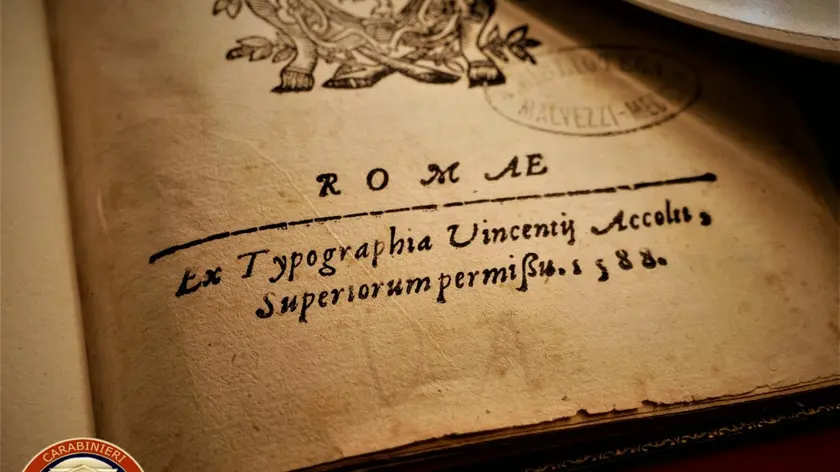 BIBLIOTECA
MALVEZZI-MED
ROMAE
Ex Typographia Vincentij Accolti,
Superiorum permißu. 1588.
CARABINIERI